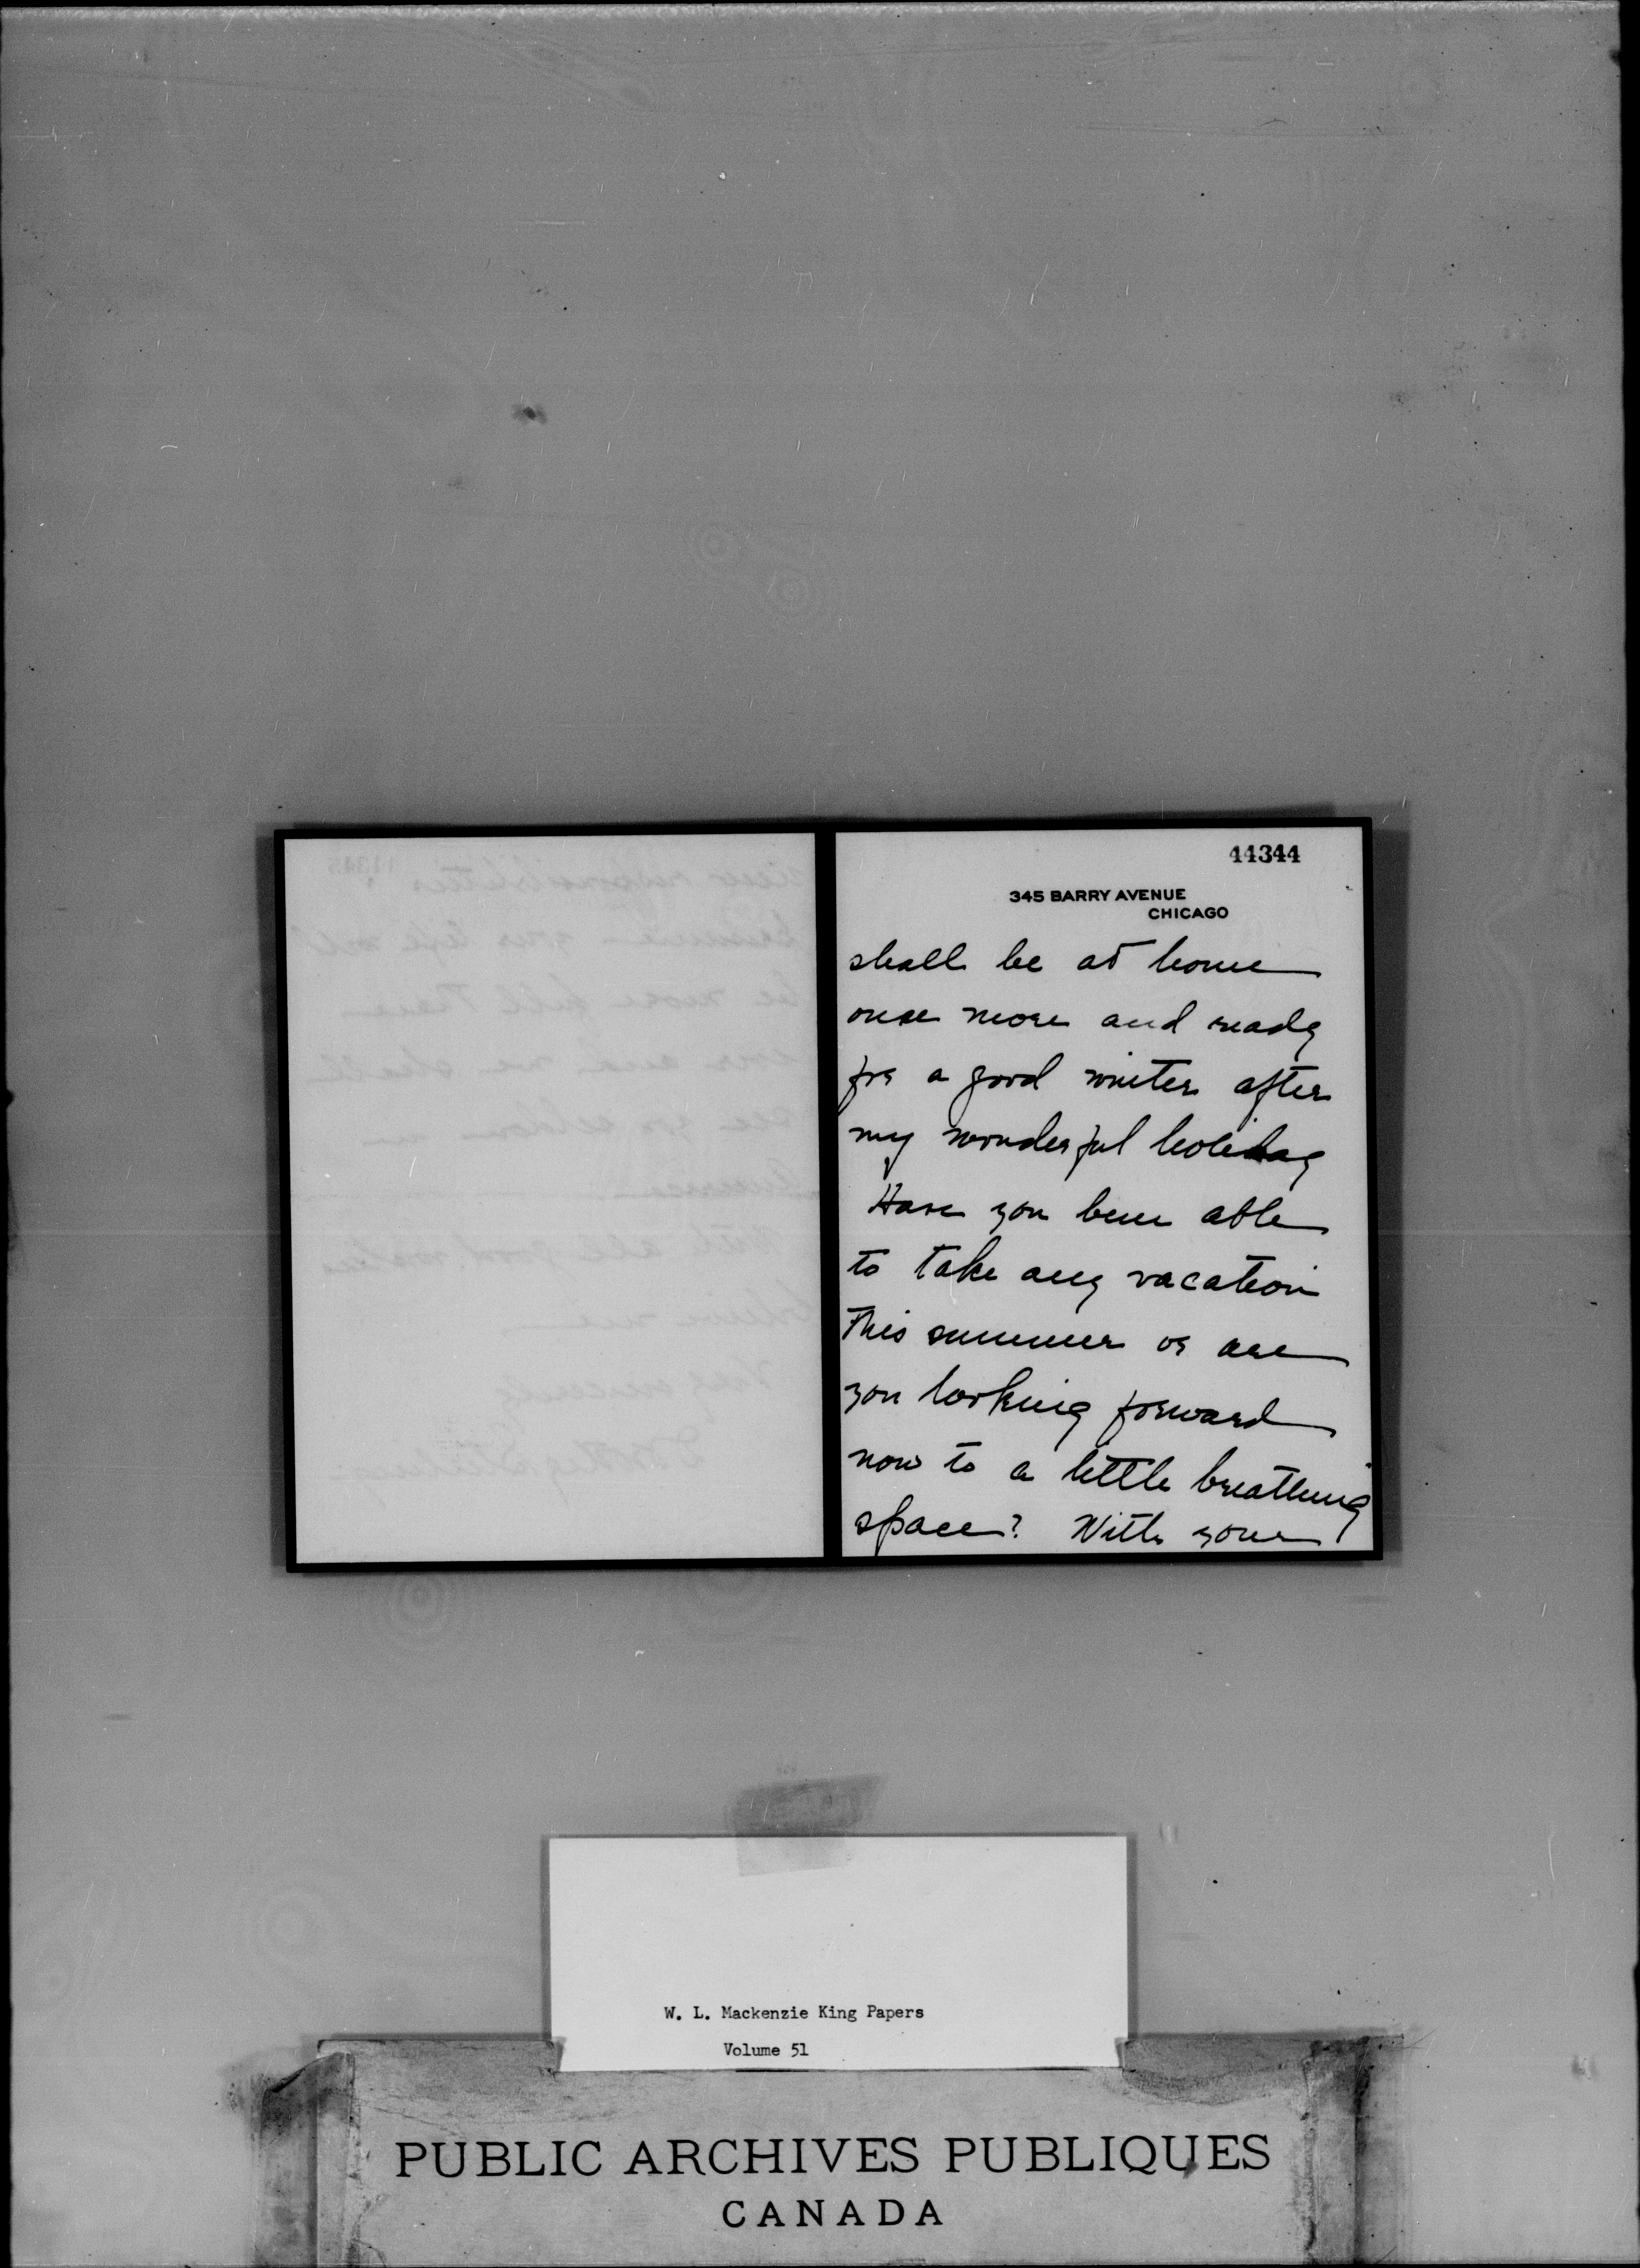 44344
345 BARRY AVENUE
CHICAGO
shall be at home
once more and ready
for a good winter after
my wonderful holiday
Have you been able
to take any vacation
this summer or are
you looking forward
now to a little breathing
space? With your
W. L. Mackenzie King Papers
Volume 51
PUBLIC ARCHIVES PUBLIQUES
CANADA